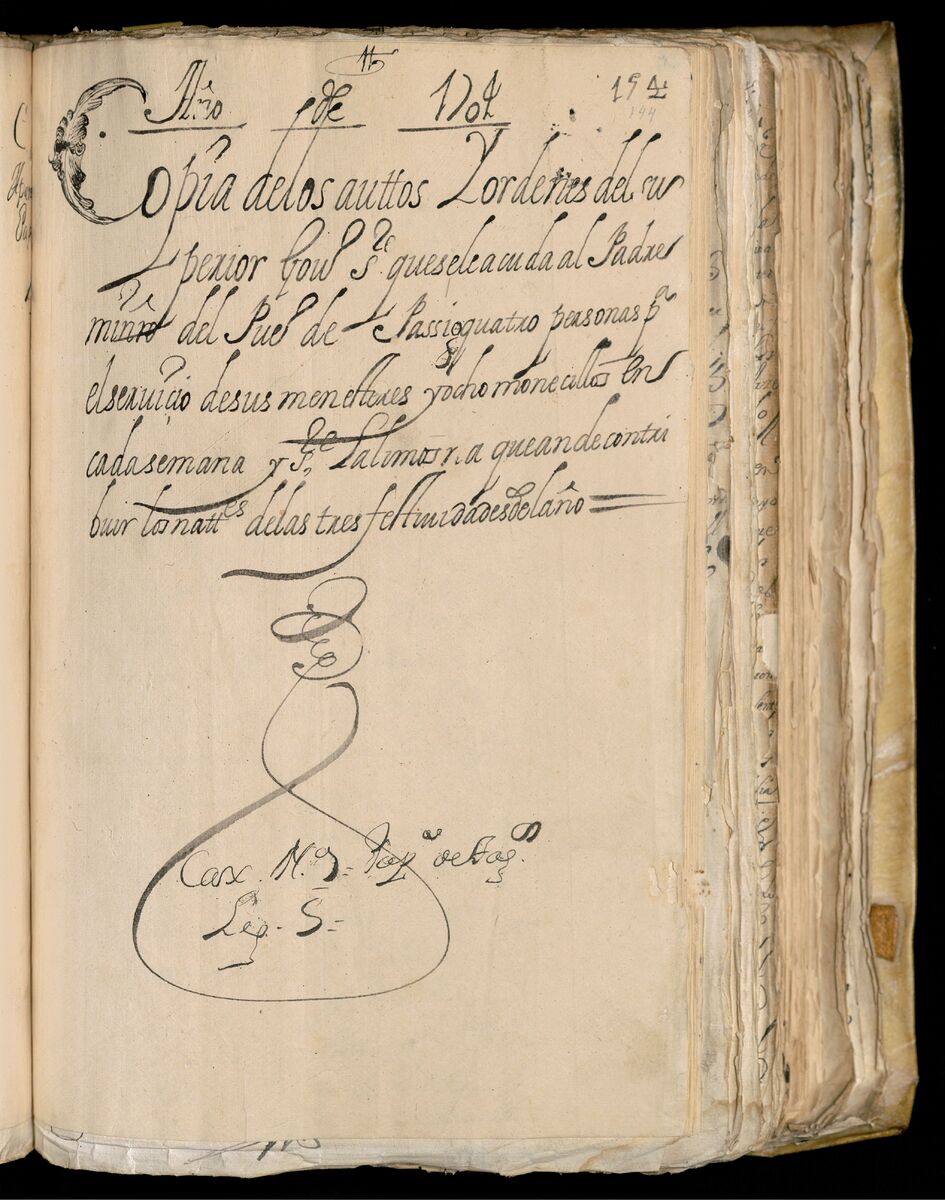 11
Año de 1704
194
144
Copia de los auttos Y ordenes del su
perior Gouno. Sre. que se le acuda al Padre
minro del Pueo de Passig quatro personas pa
el seruiçio de sus menesteres y ocho monecillos en
cada semana y Sre. La limosna que an de contri
buir los nattes de las tres festiuidades del año
Cax. N.o 7 =
Leg. 5 =